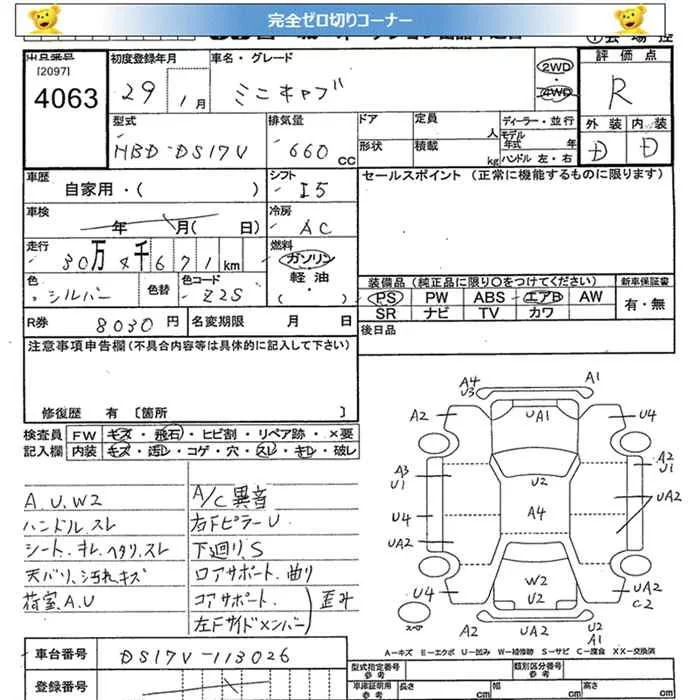 完全ゼロ切りコーナー
出品番号
[2097]
4063
初度登録年月
29 1月
車名・グレード
ミニキャブ
2WD
4WD
評価点
R
外装 内装
D D
型式
HBD-DS17V
排気量
660 CC
ドア
形状
定員 人
積載 kg
ディーラー・並行
モデル年式 年
ハンドル 左・右
車歴
自家用・( )
シフト
I5
セールスポイント (正常に機能するものに限ります)
車検
年 月( 日)
冷房
AC
走行
30万 4千 6 7 1 km
燃料
ガソリン
軽油
( )
色
シルバー
色替
色コード
Z2S
装備品(純正品に限り○をつけてください)
新車保証書
PS PW ABS エアB AW
SR ナビ TV カワ
有・無
R券 8030円
名変期限 月 日
後日品
注意事項申告欄(不具合内容等は具体的に記入して下さい)
修復歴 有 〔箇所 〕
検査員記入欄
FW キズ・飛石・ヒビ割・リペア跡・×要
内装 キズ・汚レ・コゲ・穴・スレ・キレ・破レ
A.U.W2
ハンドルスレ
シート.キレ.ヘタリ.スレ
天バリ.汚れキズ
荷室.A.U
A/C異音
右Fピラー U
下廻り.S
ロアサポート.曲り
コアサポート.
左Fサイドメンバー) 歪み
A4
U3
A1
A2
UA1
U4
A3
U1
A2
U1
U2
UA2
U4
A4
UA2
W2
U2
U4
UA2
C2
スペア
A2
UA2
U2
A1
A－キズ E－エクボ U－凹み W－補修跡 S－サビ C－腐食 XX－交換済
車台番号
DS17V-113026
登録番号
型式指定番号
参考
類別区分番号
参考
車庫証明用
参考
長さ cm
幅 cm
高さ cm